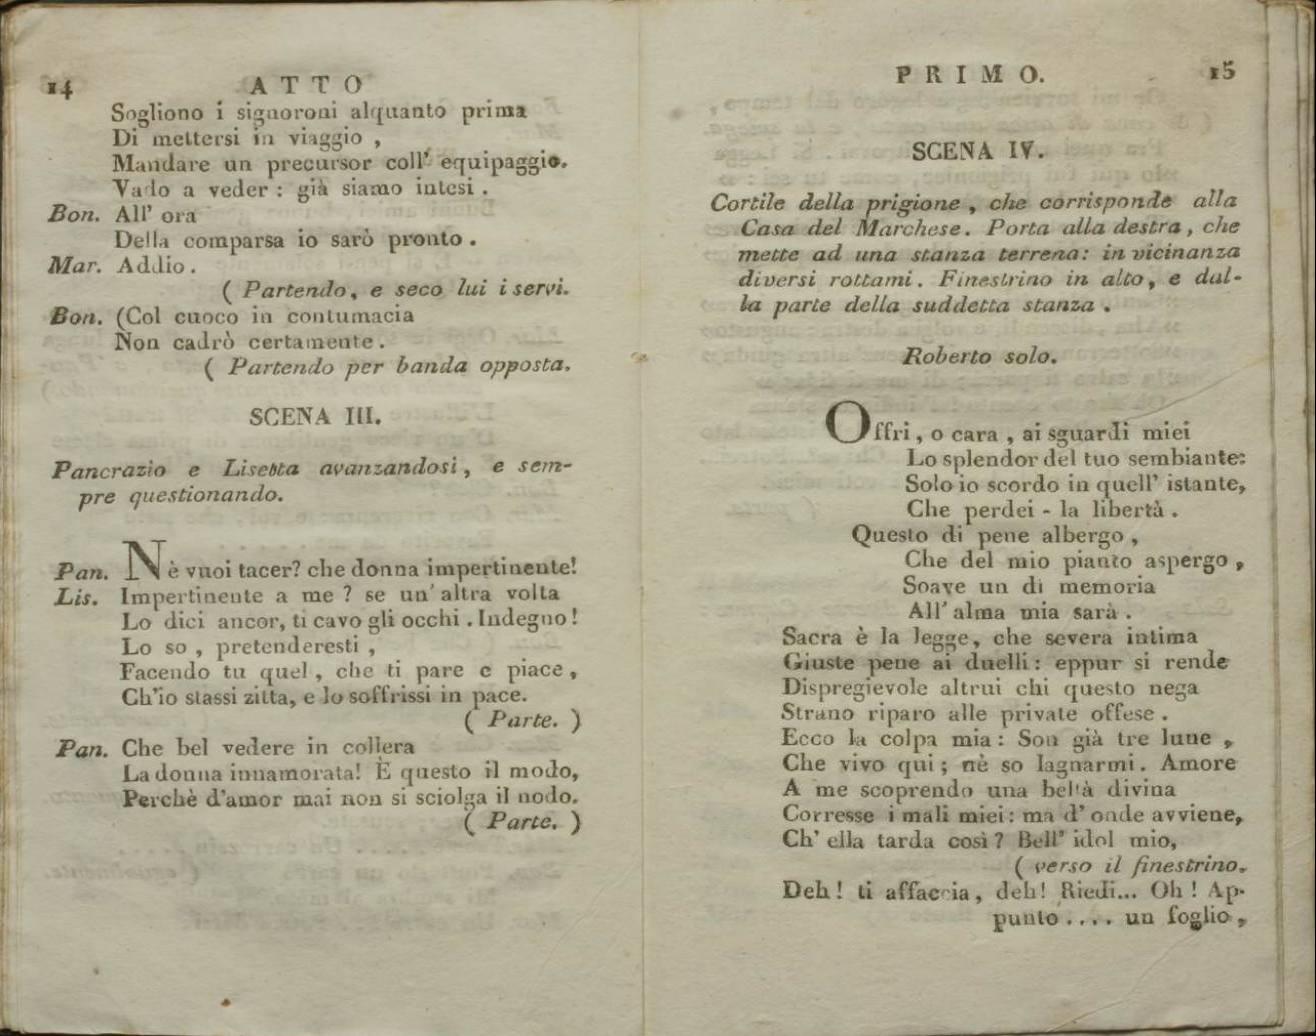 14
A T T O
Sogliono i signoroni alquanto prima
Di mettersi in viaggio ,
Mandare un precursor coll' equipaggio.
Vado a veder : già siamo intesi .
Bon. All' ora
Della comparsa io sarò pronto .
Mar. Addio .
( Partendo, e seco lui i servi.
Bon. (Col cuoco in contumacia
Non cadrò certamente .
( Partendo per banda opposta.
SCENA III.
Pancrazio e Lisetta avanzandosi , e sem-
pre questionando.
Pan. Nè vuoi tacer? che donna impertinente!
Lis. Impertinente a me ? se un' altra volta
Lo dici ancor, ti cavo gli occhi . Indegno !
Lo so , pretenderesti ,
Facendo tu quel , che ti pare e piace ,
Ch'io stassi zitta, e lo soffrissi in pace.
( Parte. )
Pan. Che bel vedere in collera
La donna innamorata! È questo il modo,
Perchè d'amor mai non si sciolga il nodo.
( Parte. )
P R I M O.
15
SCENA IV.
Cortile della prigione , che corrisponde alla
Casa del Marchese. Porta alla destra , che
mette ad una stanza terrena: in vicinanza
diversi rottami. Finestrino in alto, e dal-
la parte della suddetta stanza .
Roberto solo.
Offri , o cara , ai sguardi miei
Lo splendor del tuo sembiante:
Solo io scordo in quell' istante,
Che perdei - la libertà .
Questo di pene albergo ,
Che del mio pianto aspergo ,
Soave un dì memoria
All' alma mia sarà .
Sacra è la legge, che severa intima
Giuste pene ai duelli : eppur si rende
Dispregievole altrui chi questo nega
Strano riparo alle private offese .
Ecco la colpa mia : Son già tre lune ,
Che vivo qui ; nè so lagnarmi . Amore
A me scoprendo una beltà divina
Corresse i mali miei : ma d' onde avviene,
Ch' ella tarda così ? Bell' idol mio,
( verso il finestrino.
Deh ! ti affaccia , deh! Riedi... Oh ! Ap-
punto . . . . un foglio ,